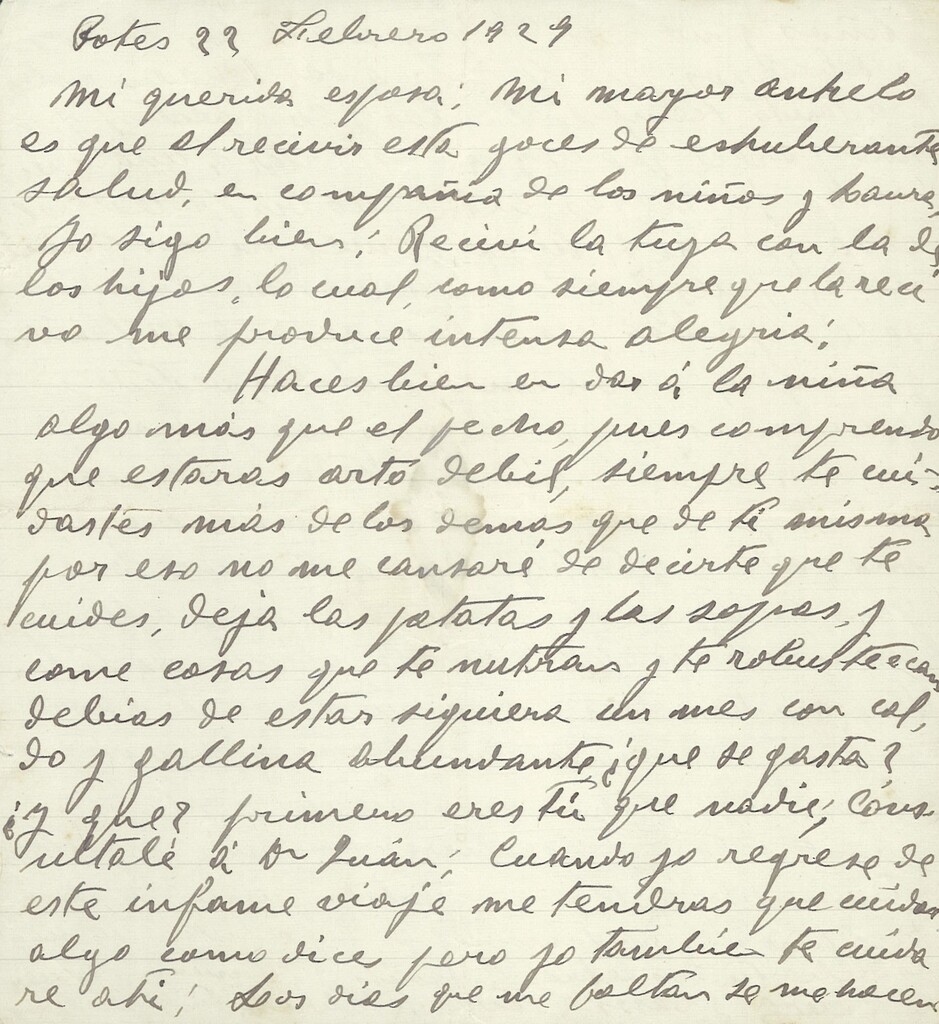 Potes 22 Febrero 1929
Mi querida esposa; Mi mayor anhelo
es que al recivir esta goces de exhuberante
salud, en compañia de los niños y Laura,
Yo sigo bien; Recivi la tuya con la de
los hijos, lo cual, como siempre que la reci
vo me produce intensa alegria;
Haces bien en dar á la niña
algo más que el pecho, pues comprendo
que estaras artó debil, siempre te cui-
dastes más de los demás que de ti misma
por eso no me cansaré de decirte que te
cuides, deja las patatas y las sopas, y
come cosas que te nutran y te robustezcan
debias de estar siquiera un mes con cal,
do y gallina abundante, ¿que se gasta?
¿y que? primero eres tú que nadie; Cons-
ultalé á Dn Juán; Cuando yo regrese de
este infame viaje me tendras que cuidar
algo como dices pero yo tambien te cuida
re a ti; Los dias que me faltan se me hacen